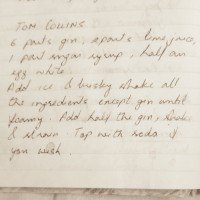 TOM COLLINS
6 parts gin, 2 parts lime juice,
1 part sugar syrup, half an
egg white.
Add ice & briskly shake all
the ingredients except gin until
foamy. Add half the gin, shake
& strain. Top with soda if
you wish.